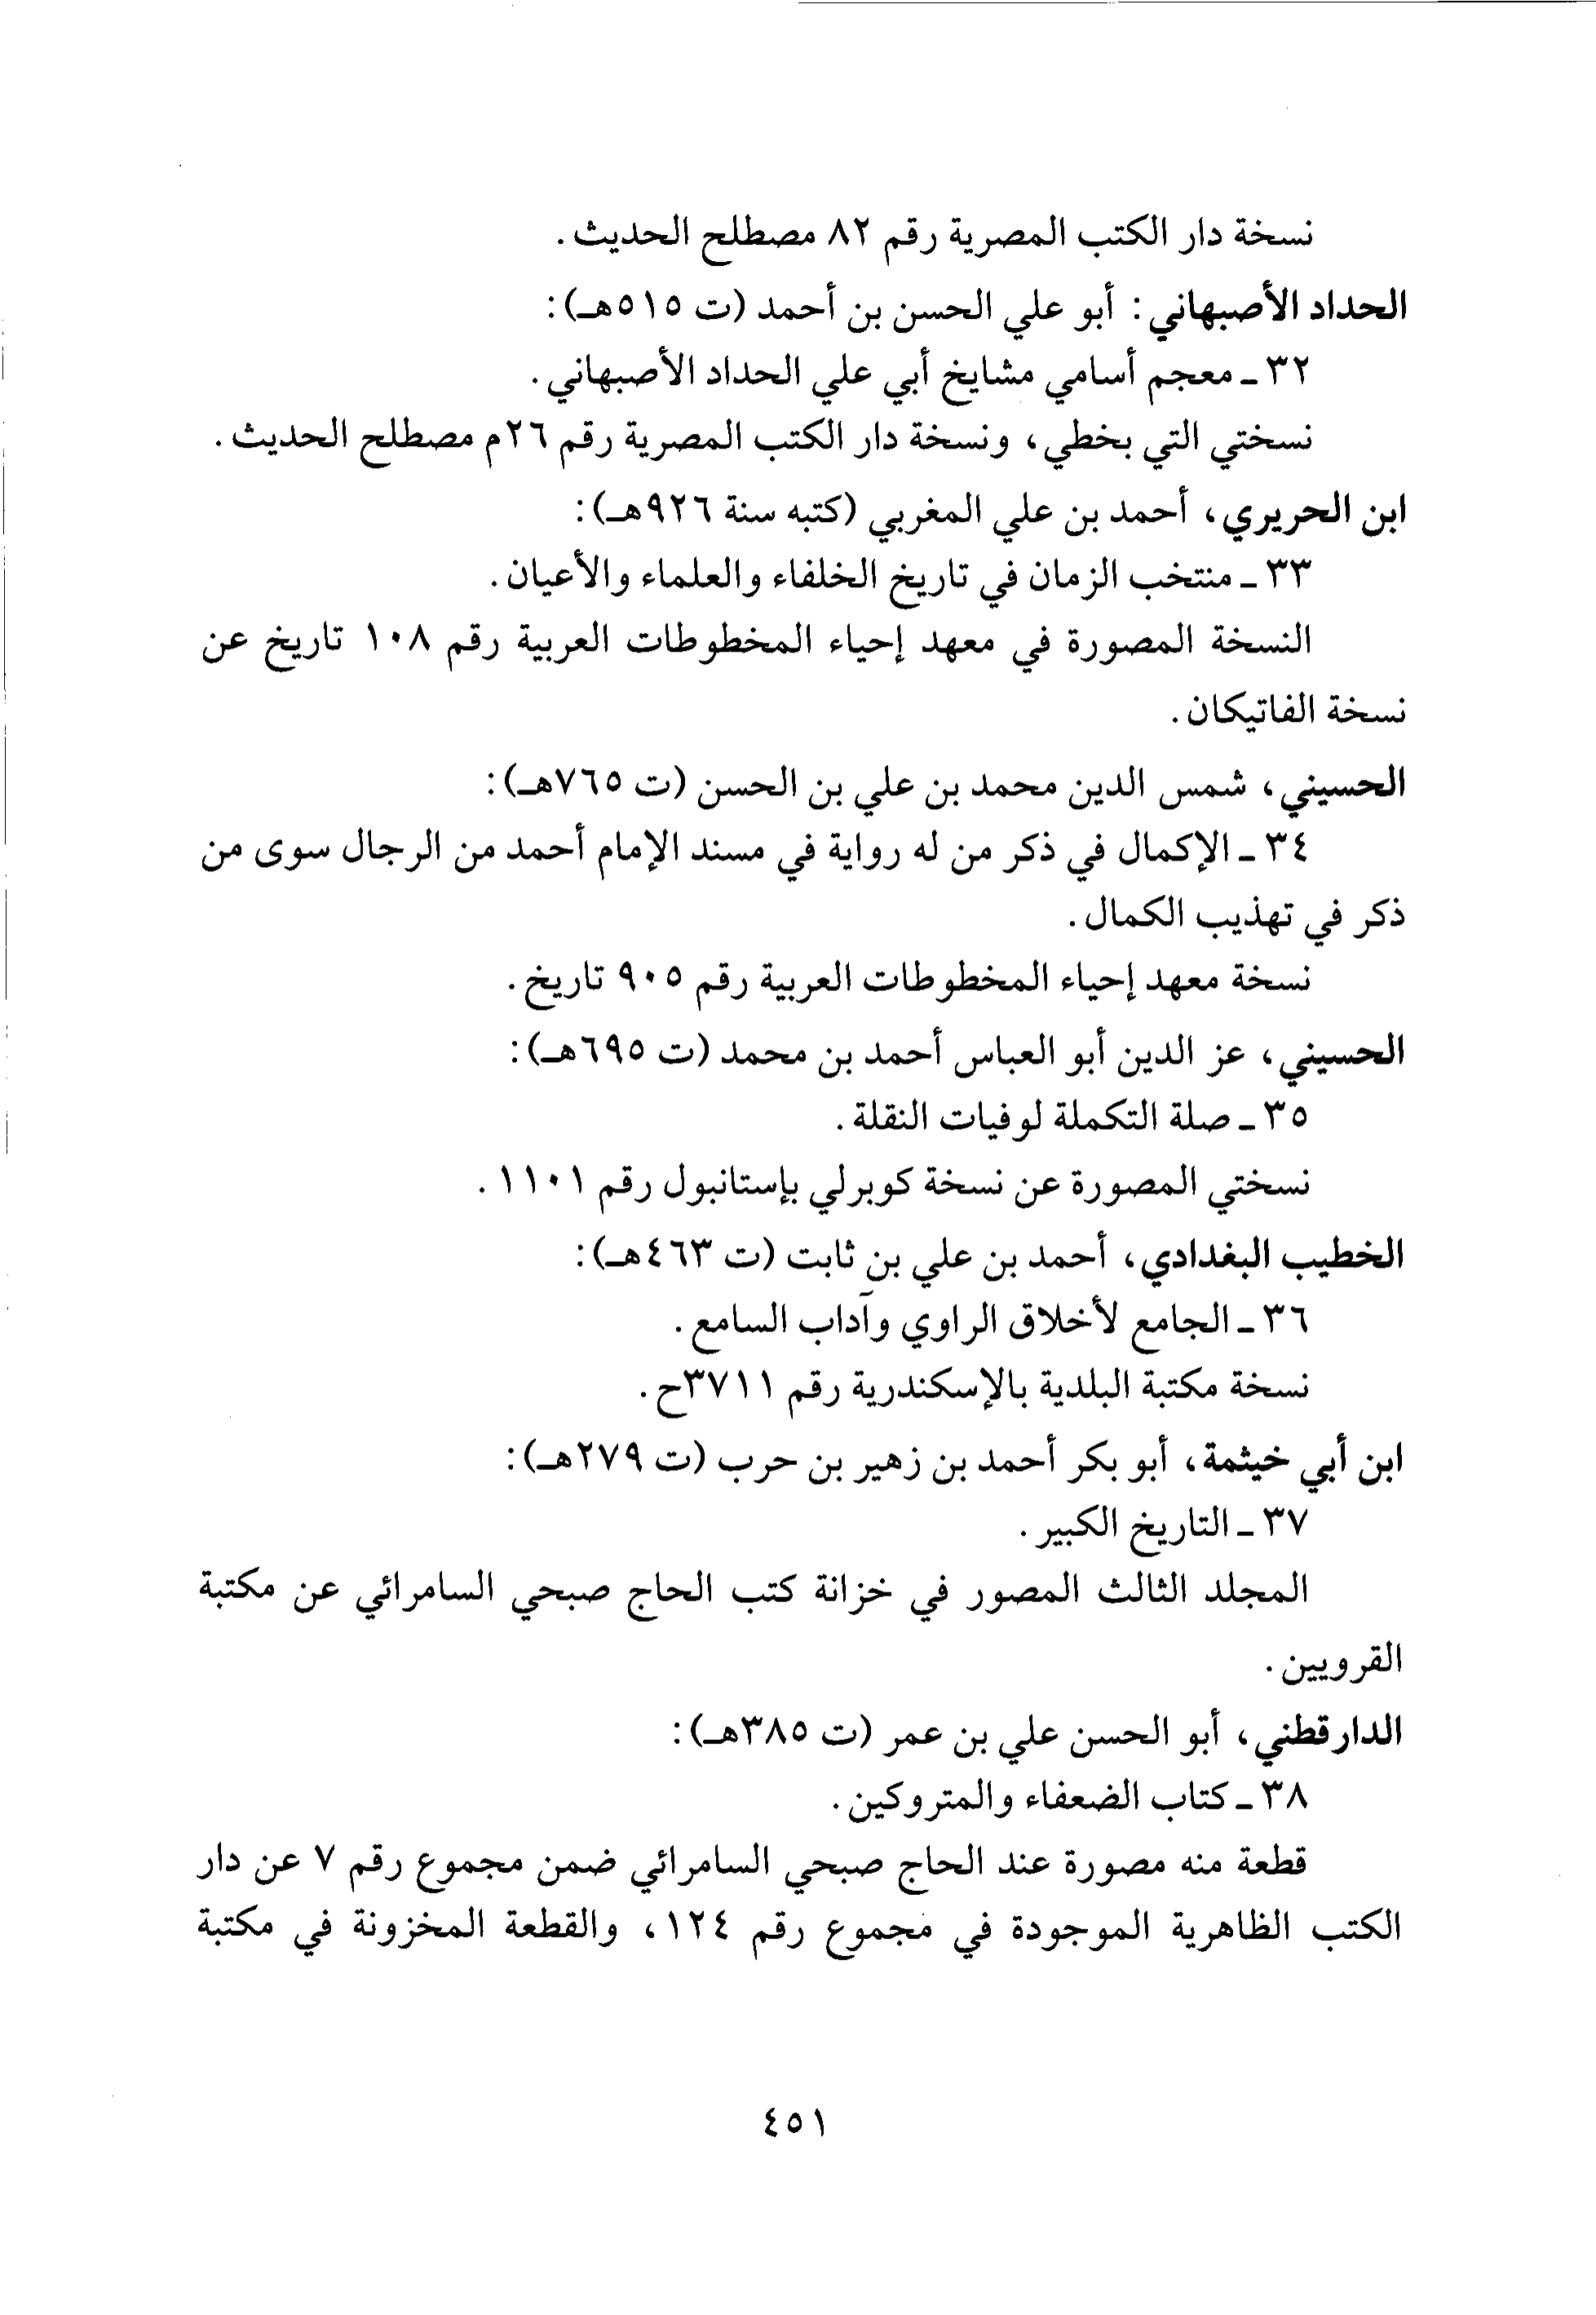 نسخة دار الكتب المصرية رقم ٨٢ مصطلح الحديث.
الحداد الأصبهاني: أبو علي الحسن بن أحمد (ت ٥١٥هـ):
٣٢ ـ معجم أسامي مشايخ أبي علي الحداد الأصبهاني.
نسختي التي بخطي، ونسخة دار الكتب المصرية رقم ٢٦م مصطلح الحديث.
ابن الحريري، أحمد بن علي المغربي (كتبه سنة ٩٢٦هـ):
٣٣ ـ منتخب الزمان في تاريخ الخلفاء والعلماء والأعيان.
النسخة المصورة في معهد إحياء المخطوطات العربية رقم ١٠٨ تاريخ عن
نسخة الفاتيكان.
الحسيني، شمس الدين محمد بن علي بن الحسن (ت ٧٦٥هـ):
٣٤ ـ الإكمال في ذكر من له رواية في مسند الإمام أحمد من الرجال سوى من
ذكر في تهذيب الكمال.
نسخة معهد إحياء المخطوطات العربية رقم ٩٠٥ تاريخ.
الحسيني، عز الدين أبو العباس أحمد بن محمد (ت ٦٩٥هـ):
٣٥ ـ صلة التكملة لوفيات النقلة.
نسختي المصورة عن نسخة كوبرلي بإستانبول رقم ١١٠١.
الخطيب البغدادي، أحمد بن علي بن ثابت (ت ٤٦٣هـ):
٣٦ ـ الجامع لأخلاق الراوي وآداب السامع.
نسخة مكتبة البلدية بالإسكندرية رقم ٣٧١١ح.
ابن أبي خيثمة، أبو بكر أحمد بن زهير بن حرب (ت ٢٧٩هـ):
٣٧ ـ التاريخ الكبير.
المجلد الثالث المصور في خزانة كتب الحاج صبحي السامرائي عن مكتبة
القرويين.
الدارقطني، أبو الحسن علي بن عمر (ت ٣٨٥هـ):
٣٨ ـ كتاب الضعفاء والمتروكين.
قطعة منه مصورة عند الحاج صبحي السامرائي ضمن مجموع رقم ٧ عن دار
الكتب الظاهرية الموجودة في مجموع رقم ١٢٤، والقطعة المخزونة في مكتبة
٤٥١